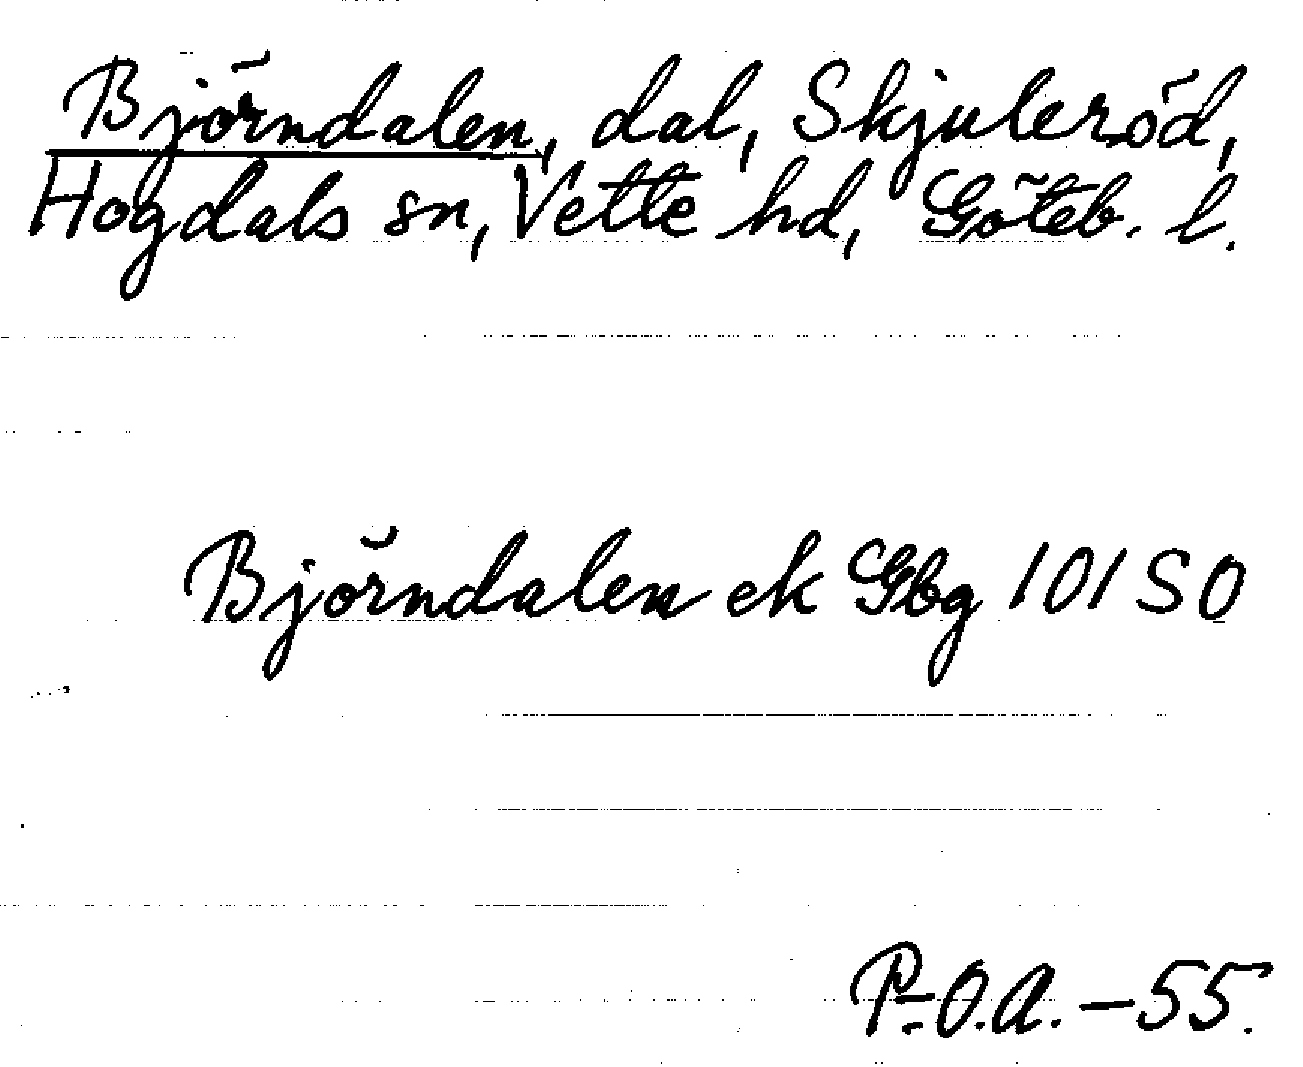 Björndalen, dal, Skjuleröd,
Hogdals sn, Vette hd, Göteb. l.
Björndalen ek Gbg 101 SO
P.-O.A. -55.